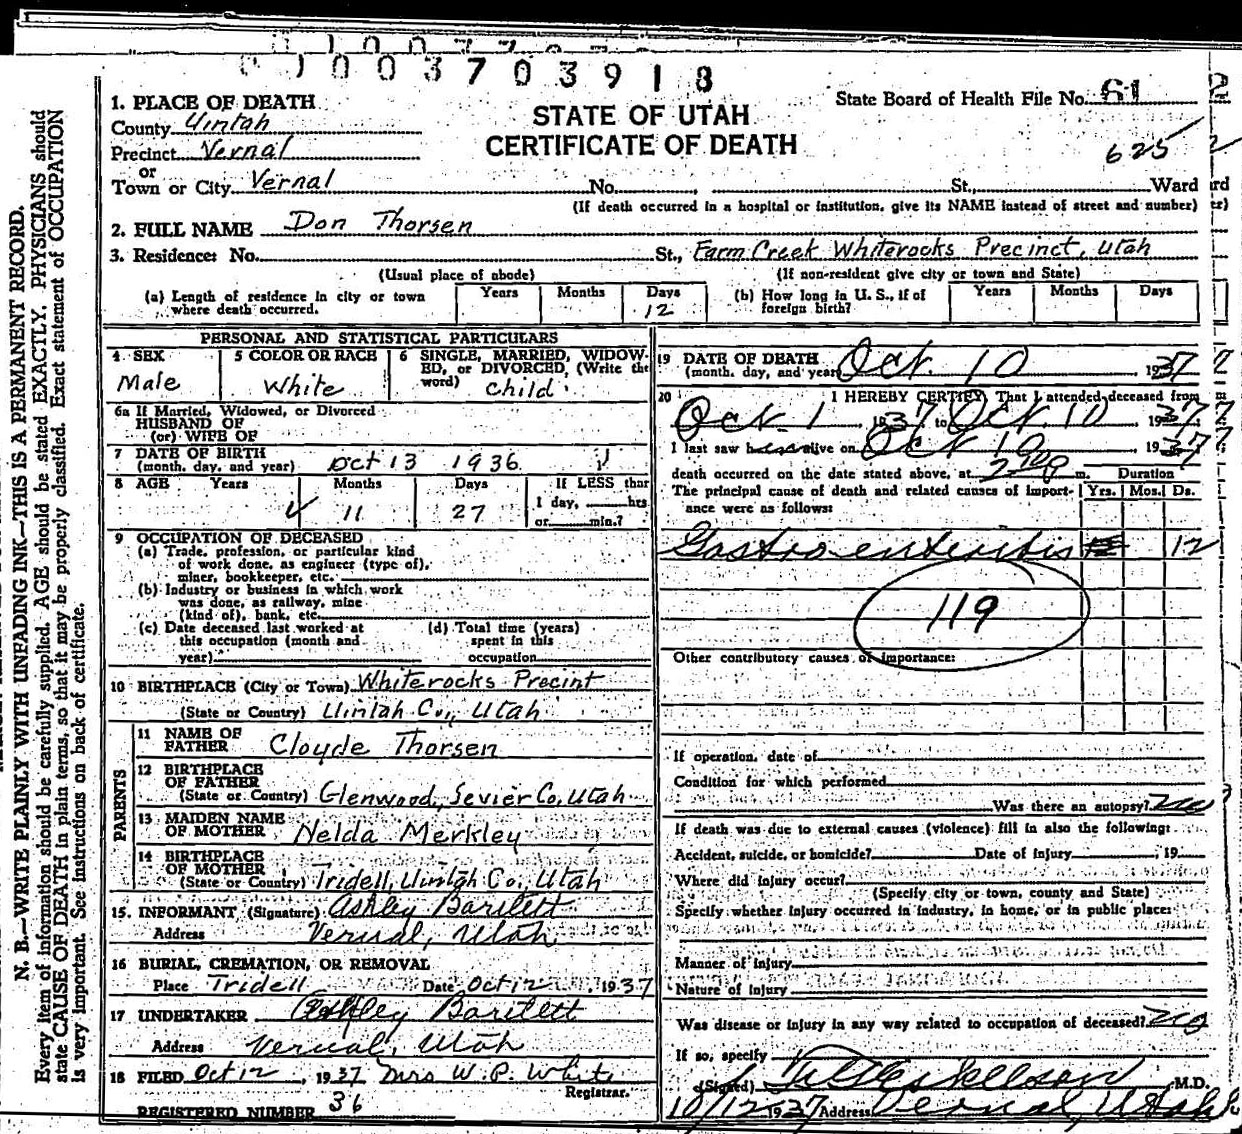 1003703918
STATE OF UTAH
CERTIFICATE OF DEATH
State Board of Health File No. 61
625
1. PLACE OF DEATH
County Uintah
Precinct Vernal
or
Town or City Vernal No. St., Ward
(If death occurred in a hospital or institution, give its NAME instead of street and number)
2. FULL NAME Don Thorsen
3. Residence: No. St., Farm Creek Whiterocks Precinct, Utah
(Usual place of abode) (If non-resident give city or town and State)
(a) Length of residence in city or town where death occurred. Years Months Days 12
(b) How long in U. S., if of foreign birth? Years Months Days
PERSONAL AND STATISTICAL PARTICULARS
4 SEX Male
5 COLOR OR RACE White
6 SINGLE, MARRIED, WIDOWED, or DIVORCED, (Write the word) Child
6a If Married, Widowed, or Divorced
HUSBAND OF
(or) WIFE OF
7 DATE OF BIRTH
(month, day, and year) Oct 13 1936
8 AGE Years Months Days If LESS than
11 27 1 day, hrs
or min.?
9 OCCUPATION OF DECEASED
(a) Trade, profession, or particular kind
of work done, as engineer (type of),
miner, bookkeeper, etc.
(b) Industry or business in which work
was done, as railway, mine
(kind of), bank, etc.
(c) Date deceased last worked at
this occupation (month and
year)
(d) Total time (years)
spent in this
occupation
10 BIRTHPLACE (City or Town) Whiterocks Precint
(State or Country) Uintah Co., Utah
PARENTS
11 NAME OF
FATHER Cloyde Thorsen
12 BIRTHPLACE
OF FATHER
(State or Country) Glenwood, Sevier Co, Utah
13 MAIDEN NAME
OF MOTHER Nelda Merkley
14 BIRTHPLACE
OF MOTHER
(State or Country) Tridell, Uintah Co., Utah
15. INFORMANT (Signature) Ashley Bartlett
Address Vernal, Utah
16 BURIAL, CREMATION, OR REMOVAL
Place Tridell Date Oct 12, 1937
17 UNDERTAKER Ashley Bartlett
Address Vernal, Utah
18 FILED Oct 12, 1937 Mrs W. P. White
Registrar.
REGISTERED NUMBER 36
19 DATE OF DEATH
(month, day, and year) Oct. 10, 1937
20 I HEREBY CERTIFY, That I attended deceased from
Oct. 1 1937 to Oct. 10, 1937
I last saw alive on Oct 10, 1937
death occurred on the date stated above, at m. Duration
The principal cause of death and related causes of importance were as follows: Yrs. Mos. Ds.
Gastro enteritis 12
119
Other contributory causes of importance:
If operation, date of
Condition for which performed
Was there an autopsy? no
If death was due to external causes (violence) fill in also the following:
Accident, suicide, or homicide? Date of injury, 19
Where did injury occur?
(Specify city or town, county and State)
Specify whether injury occurred in industry, in home, or in public place:
Manner of injury
Nature of injury
Was disease or injury in any way related to occupation of deceased? no
If so, specify
(Signed) M.D.
10/12 1937 Address Vernal, Utah
N. B.—WRITE PLAINLY WITH UNFADING INK—THIS IS A PERMANENT RECORD.
Every item of information should be carefully supplied. AGE should be stated EXACTLY. PHYSICIANS should
state CAUSE OF DEATH in plain terms, so that it may be properly classified. Exact statement of OCCUPATION
is very important. See instructions on back of certificate.